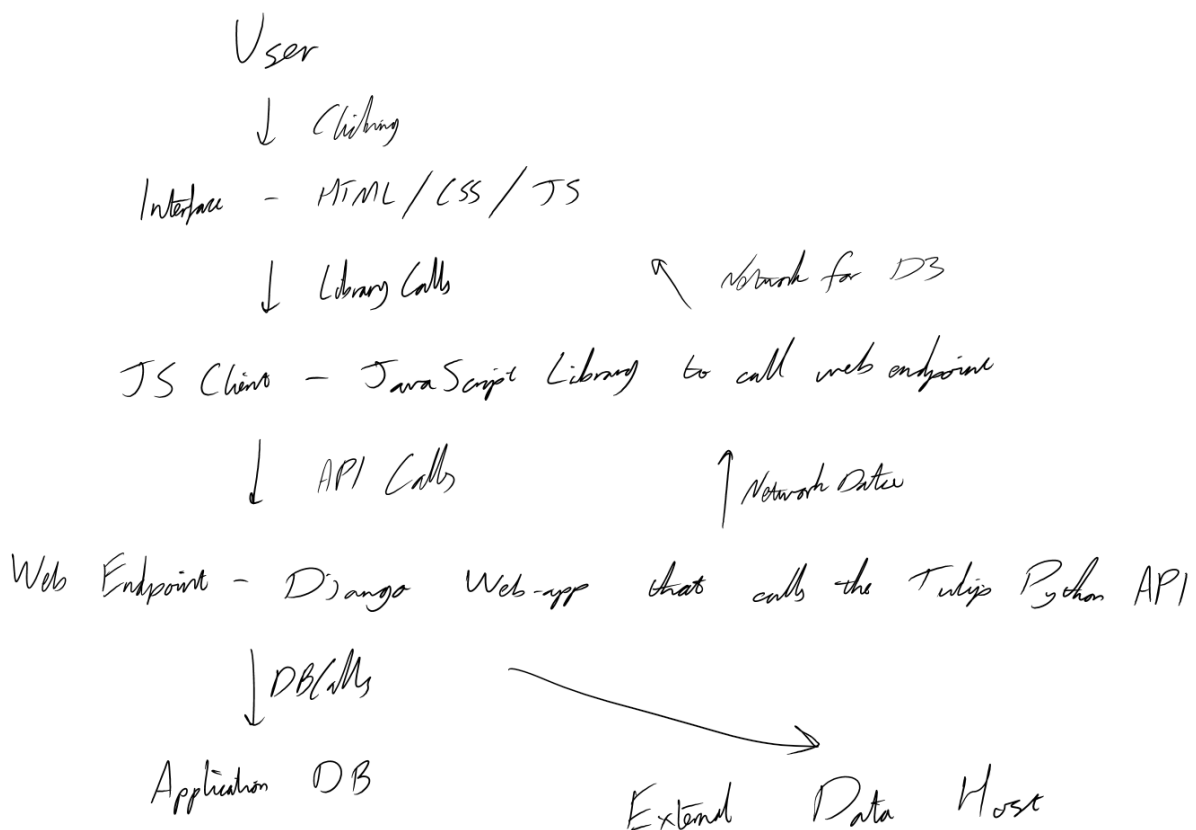 User
Clicking
Interface - HTML / CSS / JS
Library Calls
Network for D3
JS Client - JavaScript Library to call web endpoint
API Calls
Network Data
Web Endpoint - Django Web-app that calls the Tulip Python API
DB Calls
Application DB
External Data Host